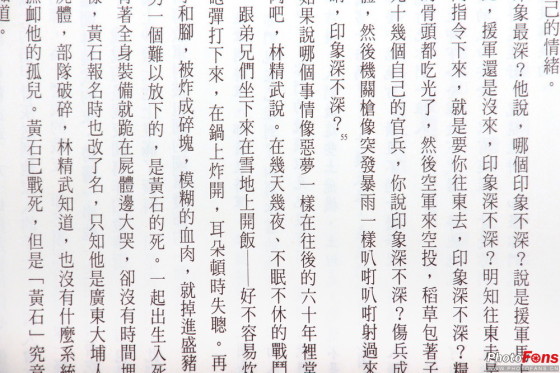 己的情緒。
象最深?他說,哪個印象不深?說是援軍馬
援軍還是沒來,印象深不深?明知往東去
指令下來,就是要你往東去,印象深不深?糧
骨頭都吃光了,然後空軍來空投,稻草包著子
十幾個自己的官兵,你說印象深不深?傷兵成
體,然後機關槍像突發暴雨一樣叭叮叭叮射過來
,印象深不深?55
如果說哪個事情像惡夢一樣在往後的六十年裡當
吧,林精武說。在幾天幾夜、不眠不休的戰鬥
跟弟兄們坐下來在雪地上開飯——好不容易炊
彈打下來,在鍋上炸開,耳朵頓時失聰。再
和腳,被炸成碎塊,模糊的血肉,就掉進盛豬
另一個難以放下的,是黃石的死。一起出生入死
著全身裝備就跪在屍體邊大哭,卻沒有時間埋
樣,黃石報名時也改了名,只知他是廣東大埔人
體,部隊破碎,林精武知道,也沒有什麼系統
撫卹他的孤兒。黃石已戰死,但是「黃石」究竟
道。
PhotoFons